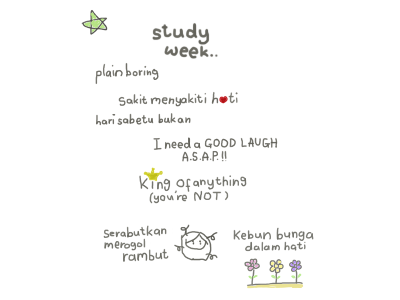 study
week..
plain boring
Sakit menyakiti hati
hari sabetu bukan
I need a GOOD LAUGH
A.S.A.P.!!
King of anything
(you're NOT)
Serabutkan
merogol
rambut
Kebun bunga
dalam hati